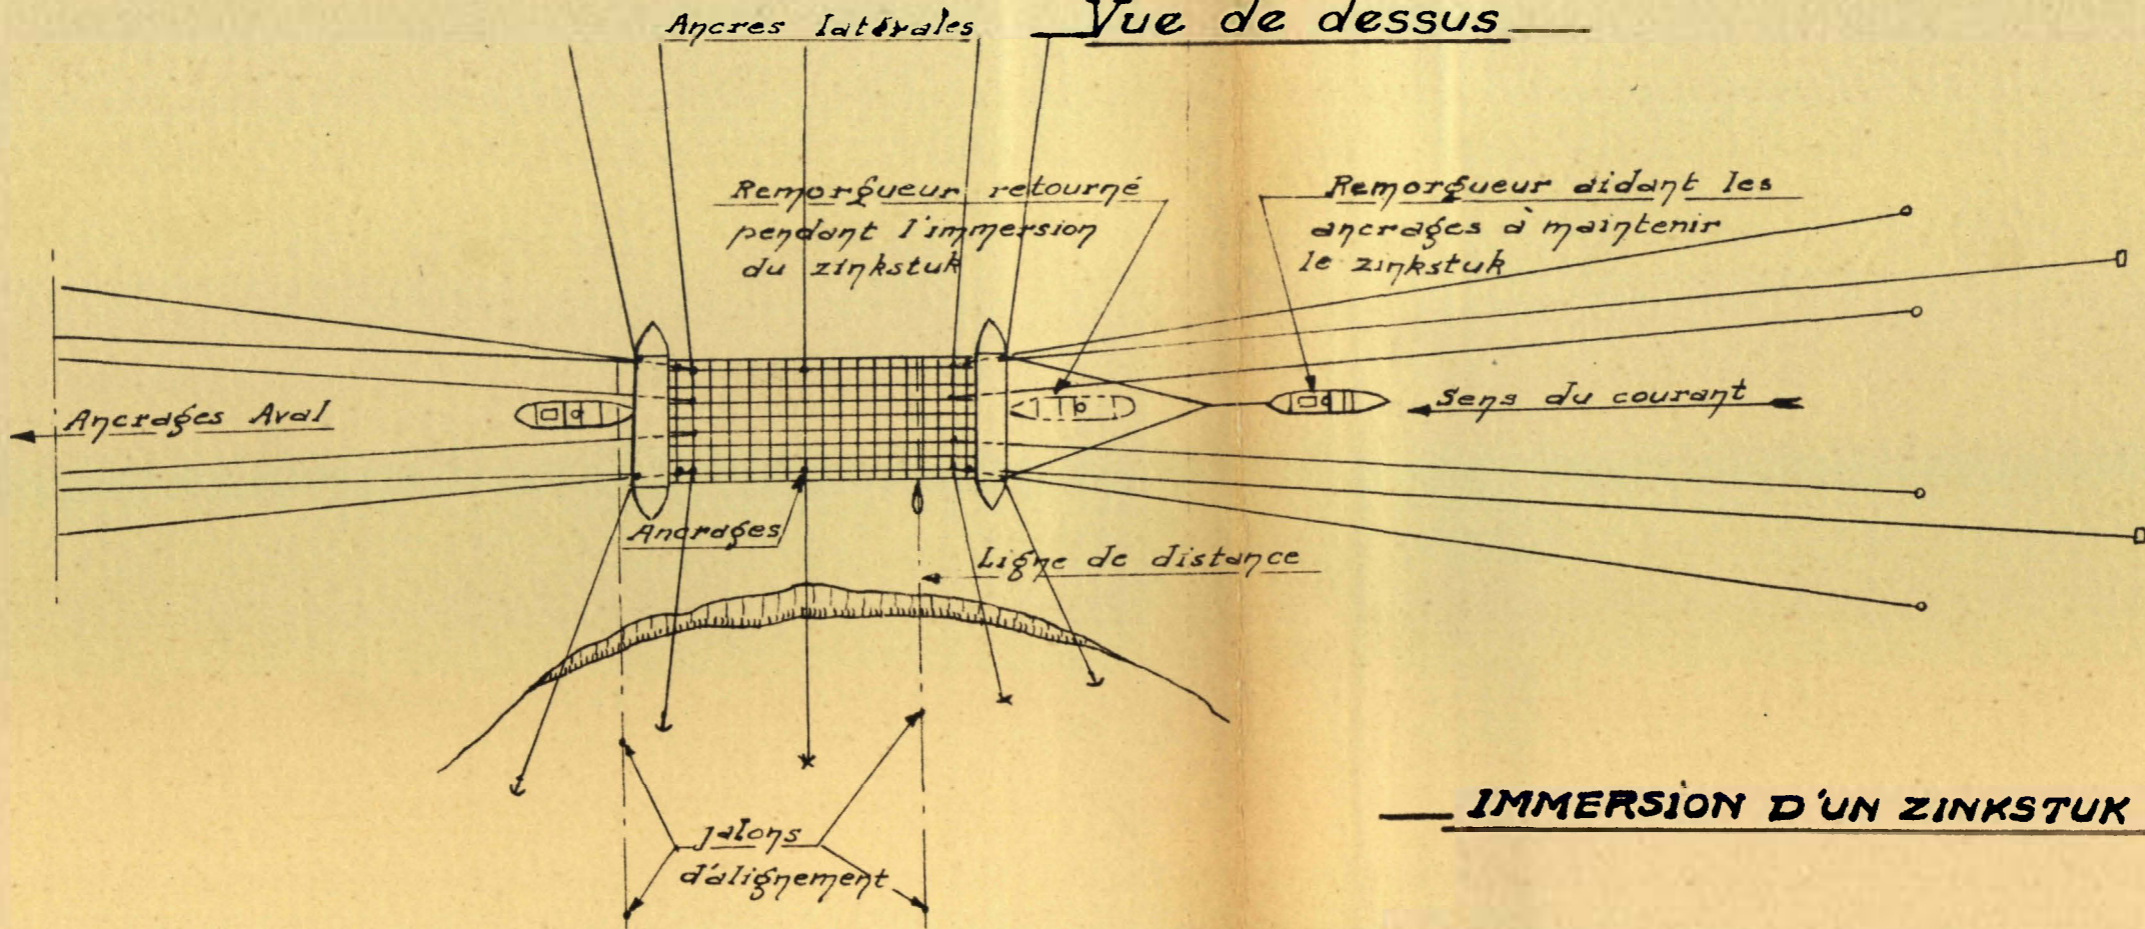 Ancres latérales
Vue de dessus
Remorqueur retourné
pendant l'immersion
du zinkstuk
Remorqueur aidant les
ancrages à maintenir
le zinkstuk
Ancrages Aval
Sens du courant
Ancrages
Ligne de distance
jalons
d'alignement
IMMERSION D'UN ZINKSTUK